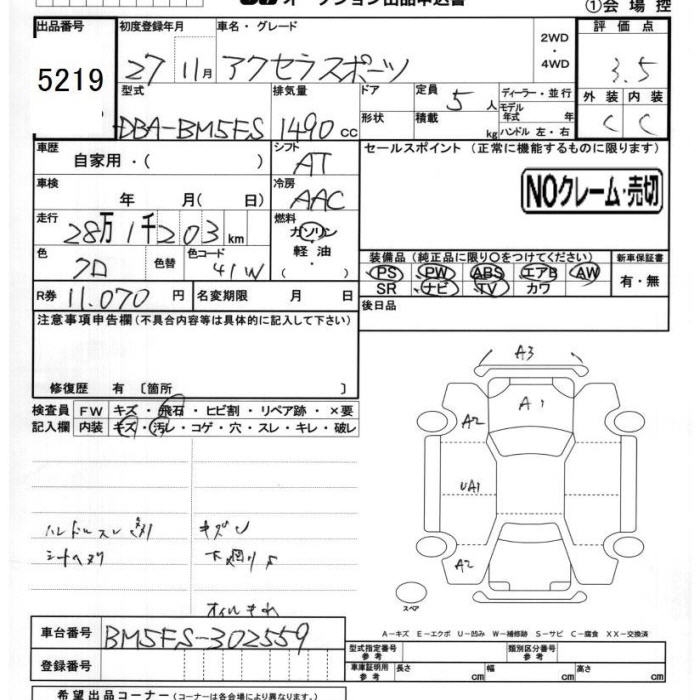 オークション出品申込書
①会場控
出品番号 初度登録年月 車名・グレード 2WD・4WD 評価点
5219 27 11月 アクセラスポーツ 3.5
型式 排気量 ドア 定員 5人 ディーラー・並行 外装 内装
DBA-BM5FS 1490cc 形状 積載 kg モデル年式 年 ハンドル 左・右 C C
車歴 自家用・( ) シフト AT セールスポイント (正常に機能するものに限ります)
車検 年 月( 日) 冷房 AAC NOクレーム・売切
走行 28万1千203km 燃料 ガソリン・軽油・( )
色 クロ 色替 色コード 41W 装備品 (純正品に限り〇をつけてください) 新車保証書
PS PW ABS エアB AW 有・無
SR ナビ TV カワ
R券 11,070円 名変期限 月 日 後日品
注意事項申告欄 (不具合内容等は具体的に記入して下さい)
修復歴 有 [箇所 ]
検査員 FW キズ・飛石・ヒビ割・リペア跡・×要
記入欄 内装 キズ・汚レ・コゲ・穴・スレ・キレ・破レ
A3
A1
A2
UA1
A2
スペア
ハンドルスレ
キズ
下廻りサ
シートヘタリ
オイルもれ
A-キズ E-エクボ U-凹み W-補修跡 S-サビ C-腐食 XX-交換済
車台番号 BM5FS-302559
登録番号
型式指定番号 参考 類別区分番号 参考
車庫証明用 参考 長さ cm 幅 cm 高さ cm
希望出品コーナー (コーナーは各会場により異なります。)